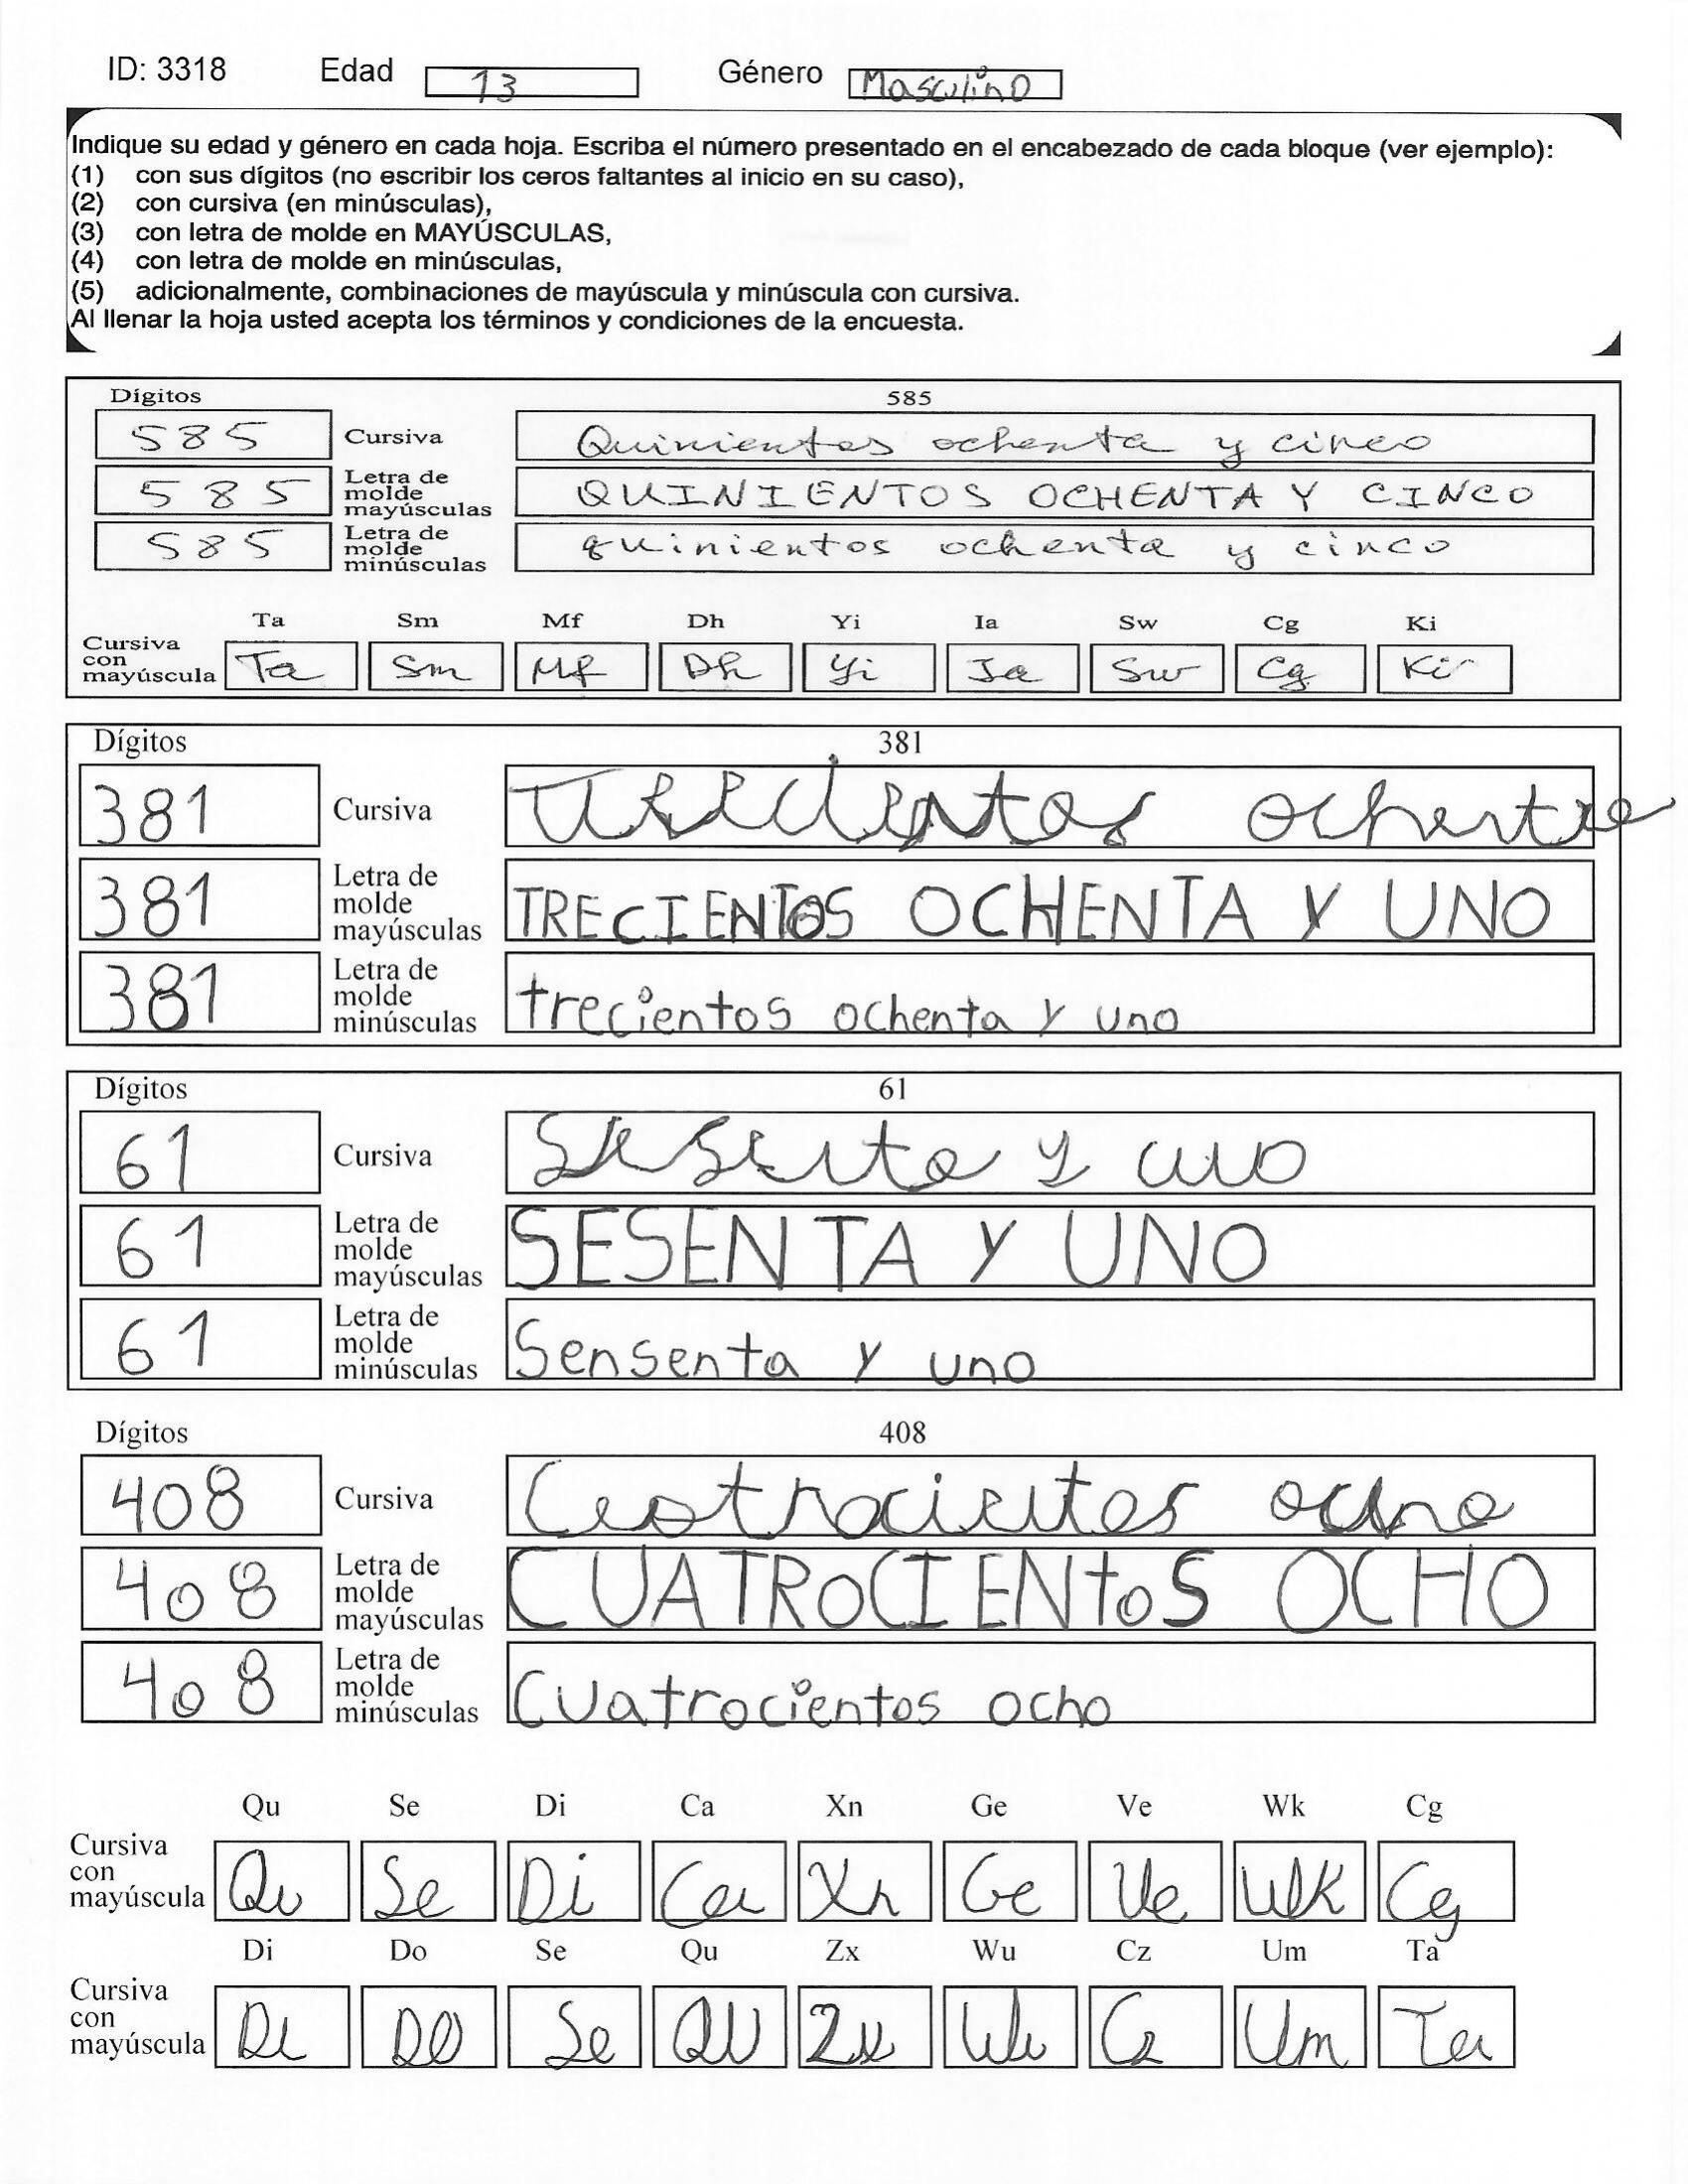 ID: 3318 Edad 13 Género Masculino
Indique su edad y género en cada hoja. Escriba el número presentado en el encabezado de cada bloque (ver ejemplo):
(1) con sus dígitos (no escribir los ceros faltantes al inicio en su caso),
(2) con cursiva (en minúsculas),
(3) con letra de molde en MAYÚSCULAS,
(4) con letra de molde en minúsculas,
(5) adicionalmente, combinaciones de mayúscula y minúscula con cursiva.
Al llenar la hoja usted acepta los términos y condiciones de la encuesta.
Dígitos 585
585 Cursiva Quinientos ochenta y cinco
585 Letra de molde mayúsculas QUINIENTOS OCHENTA Y CINCO
585 Letra de molde minúsculas quinientos ochenta y cinco
Ta Sm Mf Dh Yi Ia Sw Cg Ki
Cursiva con mayúscula Ta Sm Mf Dh Yi Ia Sw Cg Ki
Dígitos 381
381 Cursiva Trecientos ochenta
381 Letra de molde mayúsculas TRECIENTOS OCHENTA Y UNO
381 Letra de molde minúsculas trecientos ochenta y uno
Dígitos 61
61 Cursiva Sesenta y uno
61 Letra de molde mayúsculas SESENTA Y UNO
61 Letra de molde minúsculas Sensenta y uno
Dígitos 408
408 Cursiva ocho
408 Letra de molde mayúsculas CUATROCIENtoS OCHO
408 Letra de molde minúsculas Cuatrocientos ocho
Qu Se Di Ca Xn Ge Ve Wk Cg
Cursiva con mayúscula Qu Se Di Ca Xn Ge Ve Wk Cg
Di Do Se Qu Zx Wu Cz Um Ta
Cursiva con mayúscula Di DO Se QU Zx Wu Cz Um Ta